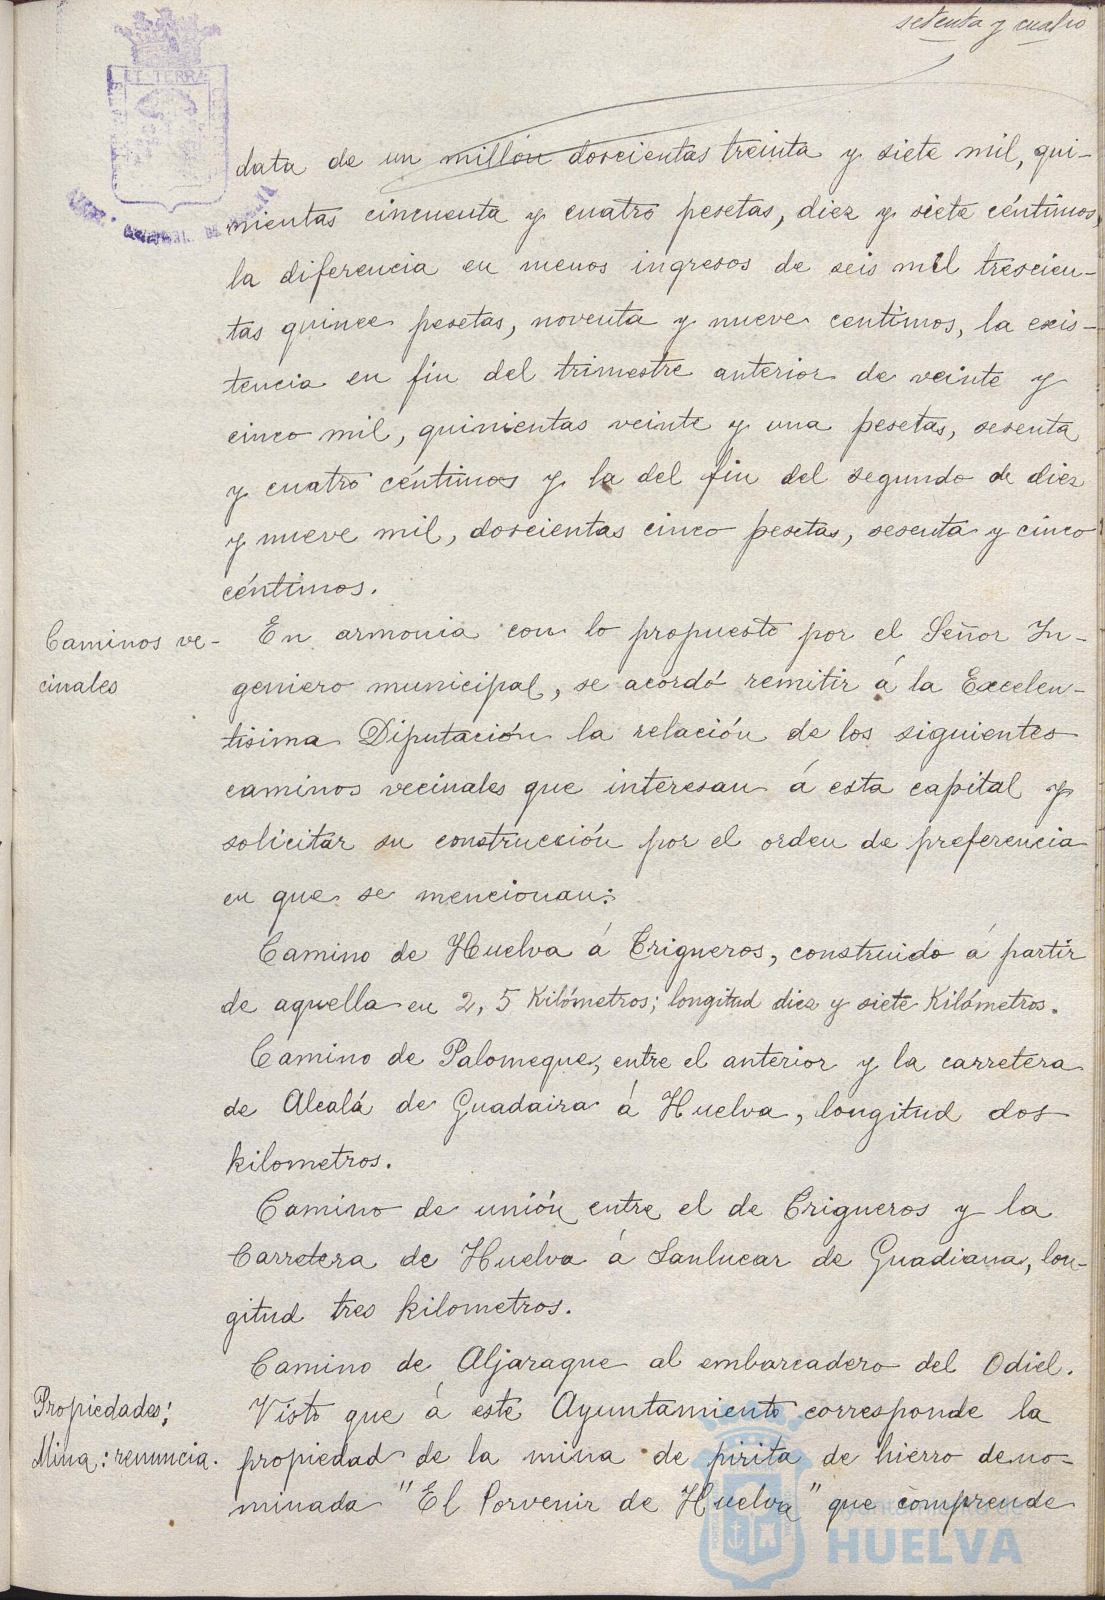 setenta y cuatro
ET TERRÆ
data de un millón doscientas treinta y siete mil, qui-
nientas cincuenta y cuatro pesetas, diez y siete céntimos,
la diferencia en menos ingresos de seis mil trescien-
tas quince pesetas, noventa y nueve centimos, la exis-
tencia en fin del trimestre anterior de veinte y
cinco mil, quinientas veinte y una pesetas, sesenta
y cuatro céntimos y la del fin del segundo de diez
y nueve mil, doscientas cinco pesetas, sesenta y cinco
céntimos.
Caminos ve-
cinales
En armonia con lo propuesto por el Señor In-
geniero municipal, se acordó remitir á la Excelen-
tisima Diputación la relación de los siguientes
caminos vecinales que interesan á esta capital y
solicitar su construcción por el orden de preferencia
en que se mencionan:
Camino de Huelva á Trigueros, construido á partir
de aquella en 2,5 Kilómetros; longitud diez y siete Kilómetros.
Camino de Palomeque, entre el anterior y la carretera
de Alcalá de Guadaira á Huelva, longitud dos
kilometros.
Camino de unión entre el de Trigueros y la
Carretera de Huelva á Sanlucar de Guadiana, lon-
gitud tres kilometros.
Camino de Aljaraque al embarcadero del Odiel.
Propiedades:
Mina: renuncia.
Visto que á este Ayuntamiento corresponde la
propiedad de la mina de pirita de hierro deno-
minada "El Porvenir de Huelva" que comprende
Ayuntamiento de
HUELVA